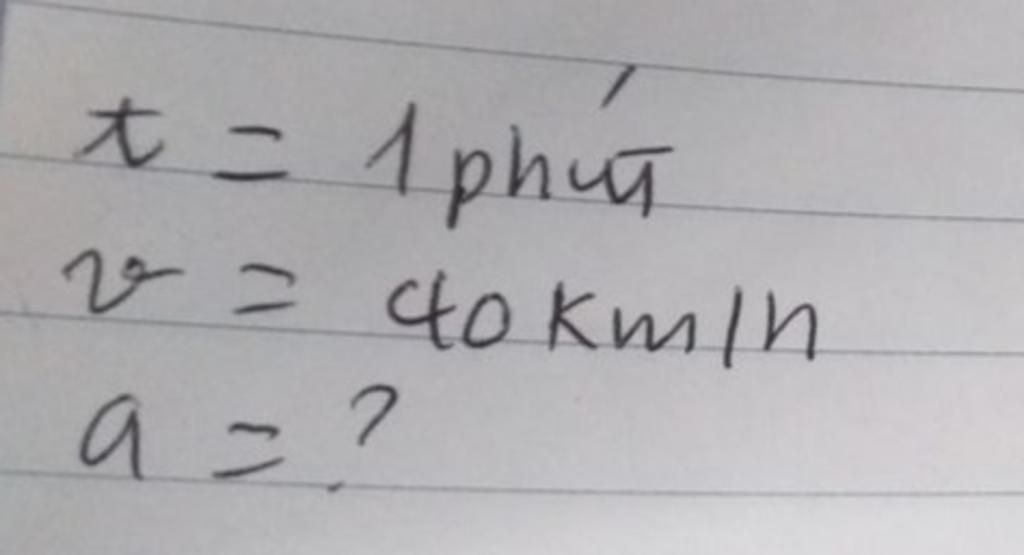 t = 1 phút
v = 40 km/h
a = ?